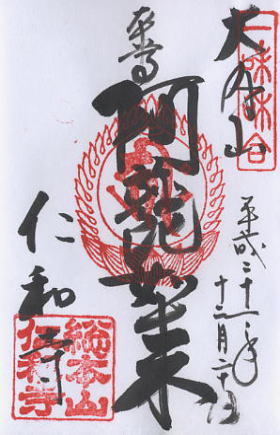 一味和合
大内山
平成二十一年
十二月二十日
阿弥陀如来
奉拝
仁和寺
総本山
仁和寺